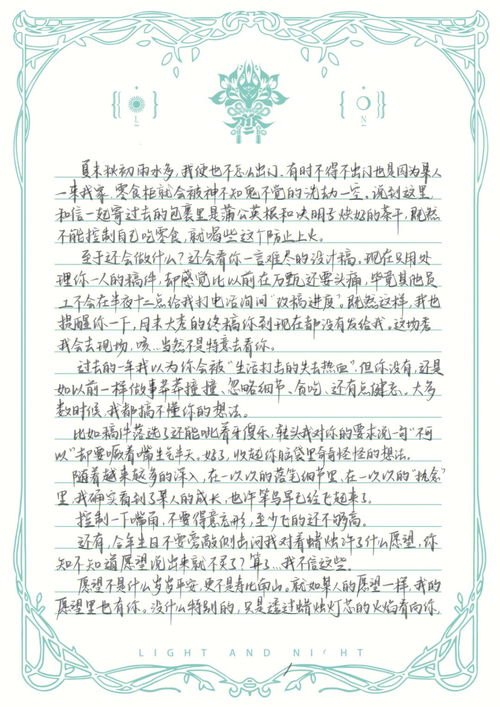 L
N
夏末秋初雨水多,我便也不怎么出门、有时不得不出门也只因为某人
一来我家,零食柜就会被神不知鬼不觉的洗劫一空。说到这里,
和信一起寄过去的包裹里是蒲公英根和决明子烘好的茶干,既然
不能控制自己吃零食,就喝些这个防止上火。
至于还会做什么?还会看你一言难尽的设计稿。现在只用处
理你一人的稿件,却感觉比以前在万甄还要头痛,毕竟其他员
工不会在半夜十二点给我打电话询问“改稿进度”。既然这样,我也
提醒你一下,月末大秀的终稿你到现在都没有发给我。这场秀
我会去现场,咳,当然不是特意去看你。
过去的一年我以为你会被“生活打击的失去热血”但你没有,还是
如以前一样做事莽莽撞撞、忽略细节、贪吃、还有点健忘。大多
数时候,我都搞不懂你的想法。
比如稿件落选了还能呲着牙傻乐,转头我对你的要求说一句“不可
以”却要噘着嘴生气半天。好了,收起你脑袋里奇奇怪怪的想法。
随着越来越多的深入,在一次次的落笔细节里,在一次次的“执念”
里,我确实看到了某人的成长,也许笨鸟早已经飞起来了。
控制一下嘴角,不要得意忘形,至少飞的还不够高。
还有,今年生日不要旁敲侧击问我对着蜡烛许了什么愿望,你
知不知道愿望说出来就不灵了?算了…我不信这些。
愿望不是什么岁岁平安,更不是寿比南山。就如某人的愿望一样,我的
愿望里也有你。没什么特别的,只是透过蜡烛灯芯的火焰看向你,
LIGHT AND NIGHT